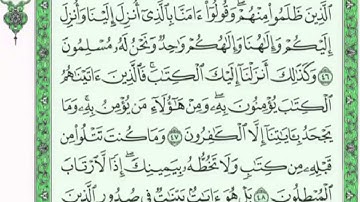 ٱلَّذِينَ ظَلَمُوا۟ مِنْهُمْ ۖ وَقُولُوٓا۟ ءَامَنَّا بِٱلَّذِىٓ أُنزِلَ إِلَيْنَا وَأُنزِلَ
إِلَيْكُمْ وَإِلَٰهُنَا وَإِلَٰهُكُمْ وَٰحِدٌ وَنَحْنُ لَهُۥ مُسْلِمُونَ
٤٦ وَكَذَٰلِكَ أَنزَلْنَآ إِلَيْكَ ٱلْكِتَٰبَ ۚ فَٱلَّذِينَ ءَاتَيْنَٰهُمُ
ٱلْكِتَٰبَ يُؤْمِنُونَ بِهِۦ ۖ وَمِنْ هَٰٓؤُلَآءِ مَن يُؤْمِنُ بِهِۦ ۚ وَمَا
يَجْحَدُ بِـَٔايَٰتِنَآ إِلَّا ٱلْكَٰفِرُونَ ٤٧ وَمَا كُنتَ تَتْلُوا۟ مِن
قَبْلِهِۦ مِن كِتَٰبٍ وَلَا تَخُطُّهُۥ بِيَمِينِكَ ۖ إِذًا لَّٱرْتَابَ
ٱلْمُبْطِلُونَ ٤٨ بَلْ هُوَ ءَايَٰتٌۢ بَيِّنَٰتٌ فِى صُدُورِ ٱلَّذِينَ